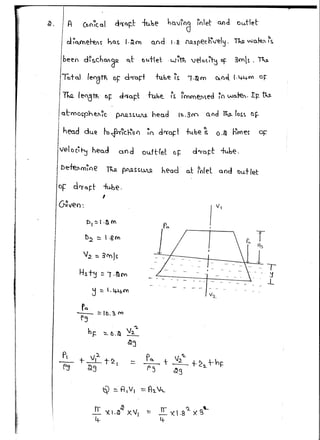 2. A Conical draft tube having inlet and outlet
diameters has 1.2m and 1.8 respectively. The water is
been discharge at outlet with velocity of 3m/s. The
Total length of draft tube is 7.2m and 1.44m of
The length of draft tube is immersed in water. If the
atmospheric pressure head 10.3m and the loss of
head due to friction in draft tube is 0.2 times of
velocity head and outlet of draft tube.
Determine The pressure head at inlet and outlet
of draft tube.
Given:
D₁ = 1.2m
D₂ = 1.8m
V₂ = 3m/s
Hs+y = 7.2m
y = 1.44m
Pa/ρg = 10.3m
hf = 0.2 V₂²/2g
P₁/ρg + V₁²/2g + z₁ = Pa/ρg + V₂²/2g + z₂ + hf
Q = A₁V₁ = A₂V₂
π/4 × 1.2² × V₁ = π/4 × 1.8² × 3
V₁
Pa
Hs
y
V₂